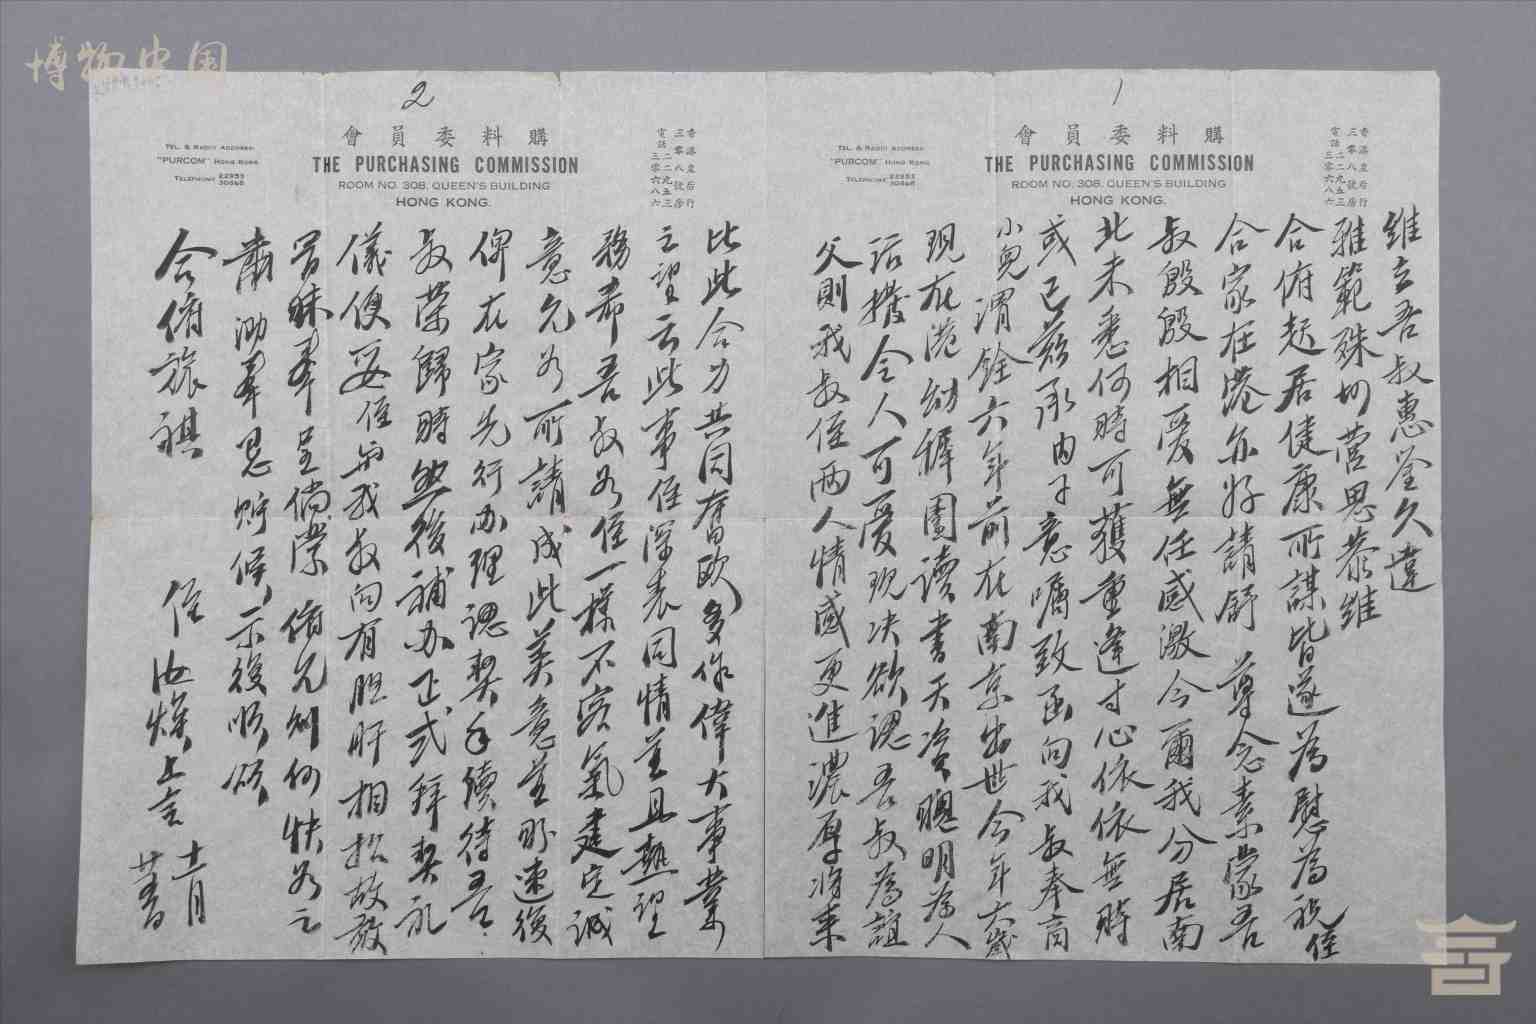 博物中国
1
購料委員會
THE PURCHASING COMMISSION
ROOM NO. 308, QUEEN'S BUILDING
HONG KONG.
TEL. & RADIO ADDRESS:
"PURCOM" HONG KONG
TELEPHONE 22953
30868
香港皇后行
三零八號房
電話二二九五三
三零八六八
維立吾叔惠鉴久違
雅範殊切營思恭維
合府起居健康所謀皆遂為慰為祝侄
合家在港亦好請舒 尊念素蒙吾
叔殷殷相愛無任感激今爾我分居南
北未悉何時可獲重逢寸心依依無時
或已兹承内子意囑致函向我叔奉商
小兒渭銓六年前在南京出世今年六歲
現在港幼穉園讀書天資聰明為人
活撥令人可愛現决欲認吾叔為誼
父則我叔侄兩人情感更進濃厚將來
2
購料委員會
THE PURCHASING COMMISSION
ROOM NO. 308, QUEEN'S BUILDING
HONG KONG.
TEL. & RADIO ADDRESS:
"PURCOM" HONG KONG
TELEPHONE 22953
30868
香港皇后行
三零八號房
電話二二九五三
三零六八六
比此合力共同奮歐多做偉大事業
之望云此事侄深表同情並且熱望
務希吾叔如侄一樣不客氣建定誠
意允如所請成此美意並盼速復
俾在家先行办理認契手續待吾
叔荣歸時然後補办正式拜契礼
儀便妥侄与我叔向有胆肝相招故敢
冒昧奉呈倘蒙 俯允則何快如之
肅泐奉恩貯候示復順頌
合府旅祺
侄汝煐上言
十一月
廿五日